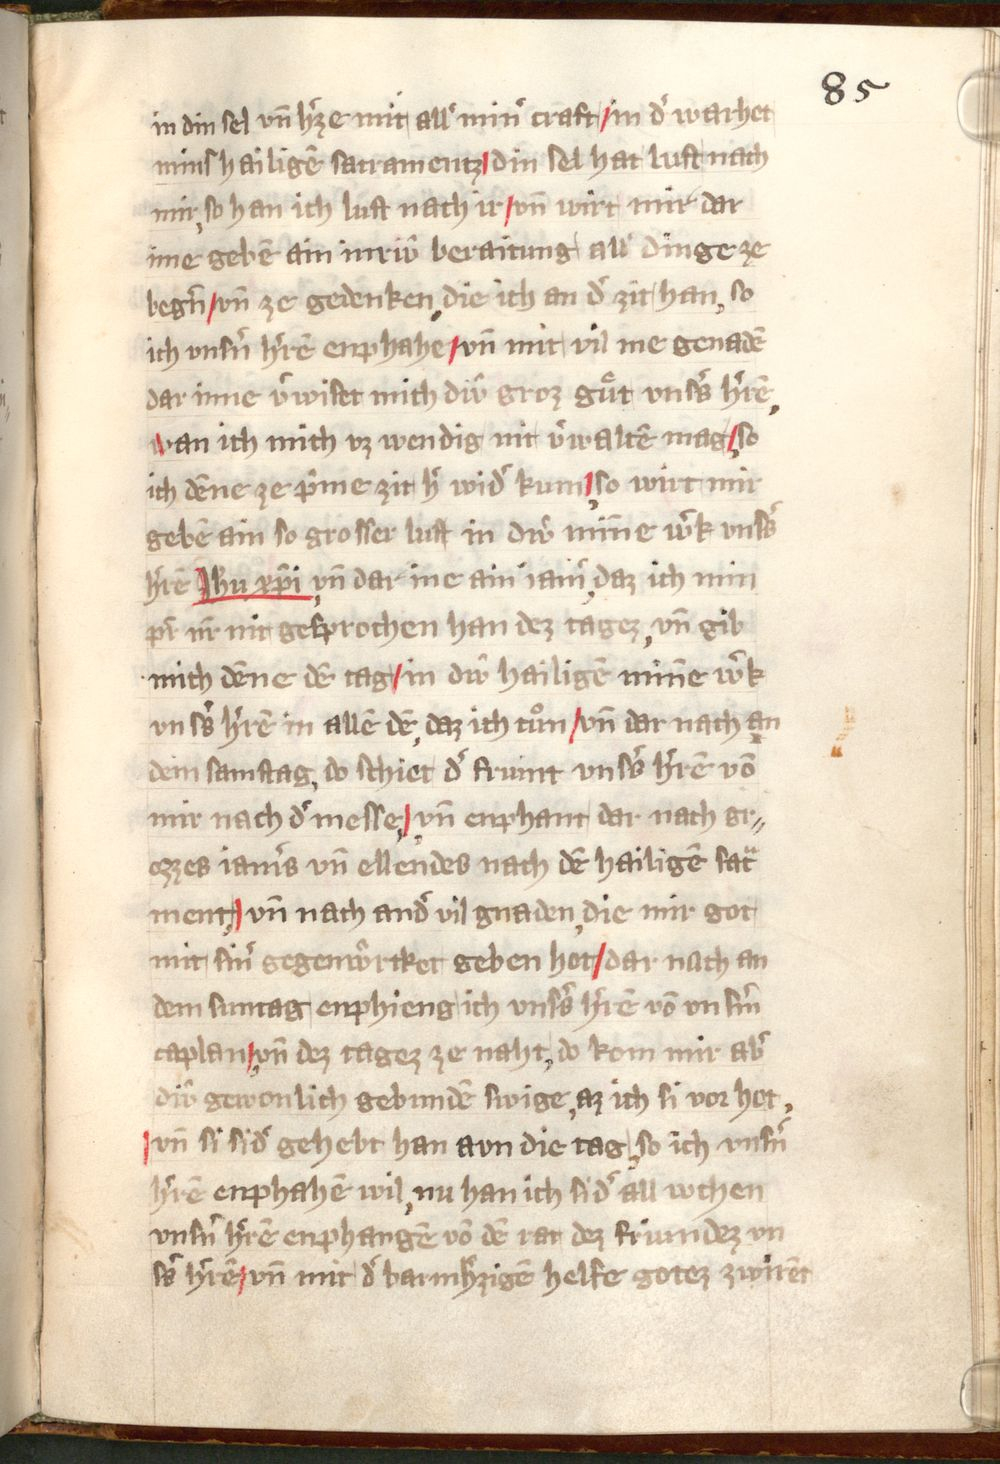 85
in din sel vñ h'ze mit all' min' craft / in d' warhet
mins hailigē sacramentz / din sel hat lust nach
mir, so han ich lust nach ir / vñ wirt mir dar
inne gebē ain inriv̂ beraitung all' dinge ze
begñ / vñ ze gedenken, die ich an d' zit han, so
ich vnsn̄ h'rē enphahe / vñ mit vil me genadē
dar inne v'wiset mich div̂ groz guͤt vns's h'rē,
wan ich mich vz wendig nit v'waltē mag / so
ich dēne ze p'me zit h' wid' kum / so wirt mir
gebē ain so grosser lust in div̂ miñe w'k vns's
h'rē Jhu xp̄i, vñ dar ine ain iam', daz ich min
pr̄ nr̄ nit gesprochen han dez tagez, vñ gib
mich dēne dē tag / in div̂ hailigē miñe w'k
vns's h'rē in allē dē, daz ich tuͦn / vñ dar nach an
dem samstag, do schiet d' friunt vns's h'rē vō
mir nach d' messe, / vñ enphant dar nach gr〃
ozzes iam's vñ ellendes nach dē hailigē sacͣ
ment, / vñ nach and' vil gnaden, die mir got
mit sin' gegenw'rtket geben het / dar nach an
dem suntag enphieng ich vns's h'rē vō vnsm̄
caplan / vñ dez tagez ze naht, do kom mir ab'
div̂ gewonlich gebundē swige, az ich si vor het,
/ vñ si sid' gehebt han avn die tag, so ich vnsn̄
h'rē enphahē wil, nu han ich sid' all wchen
vnsn̄ h'rē enphangē vō dē rat dez friundez vn
s's h'rē / vñ mit d' barmh'zigē helfe gotez zwirēt